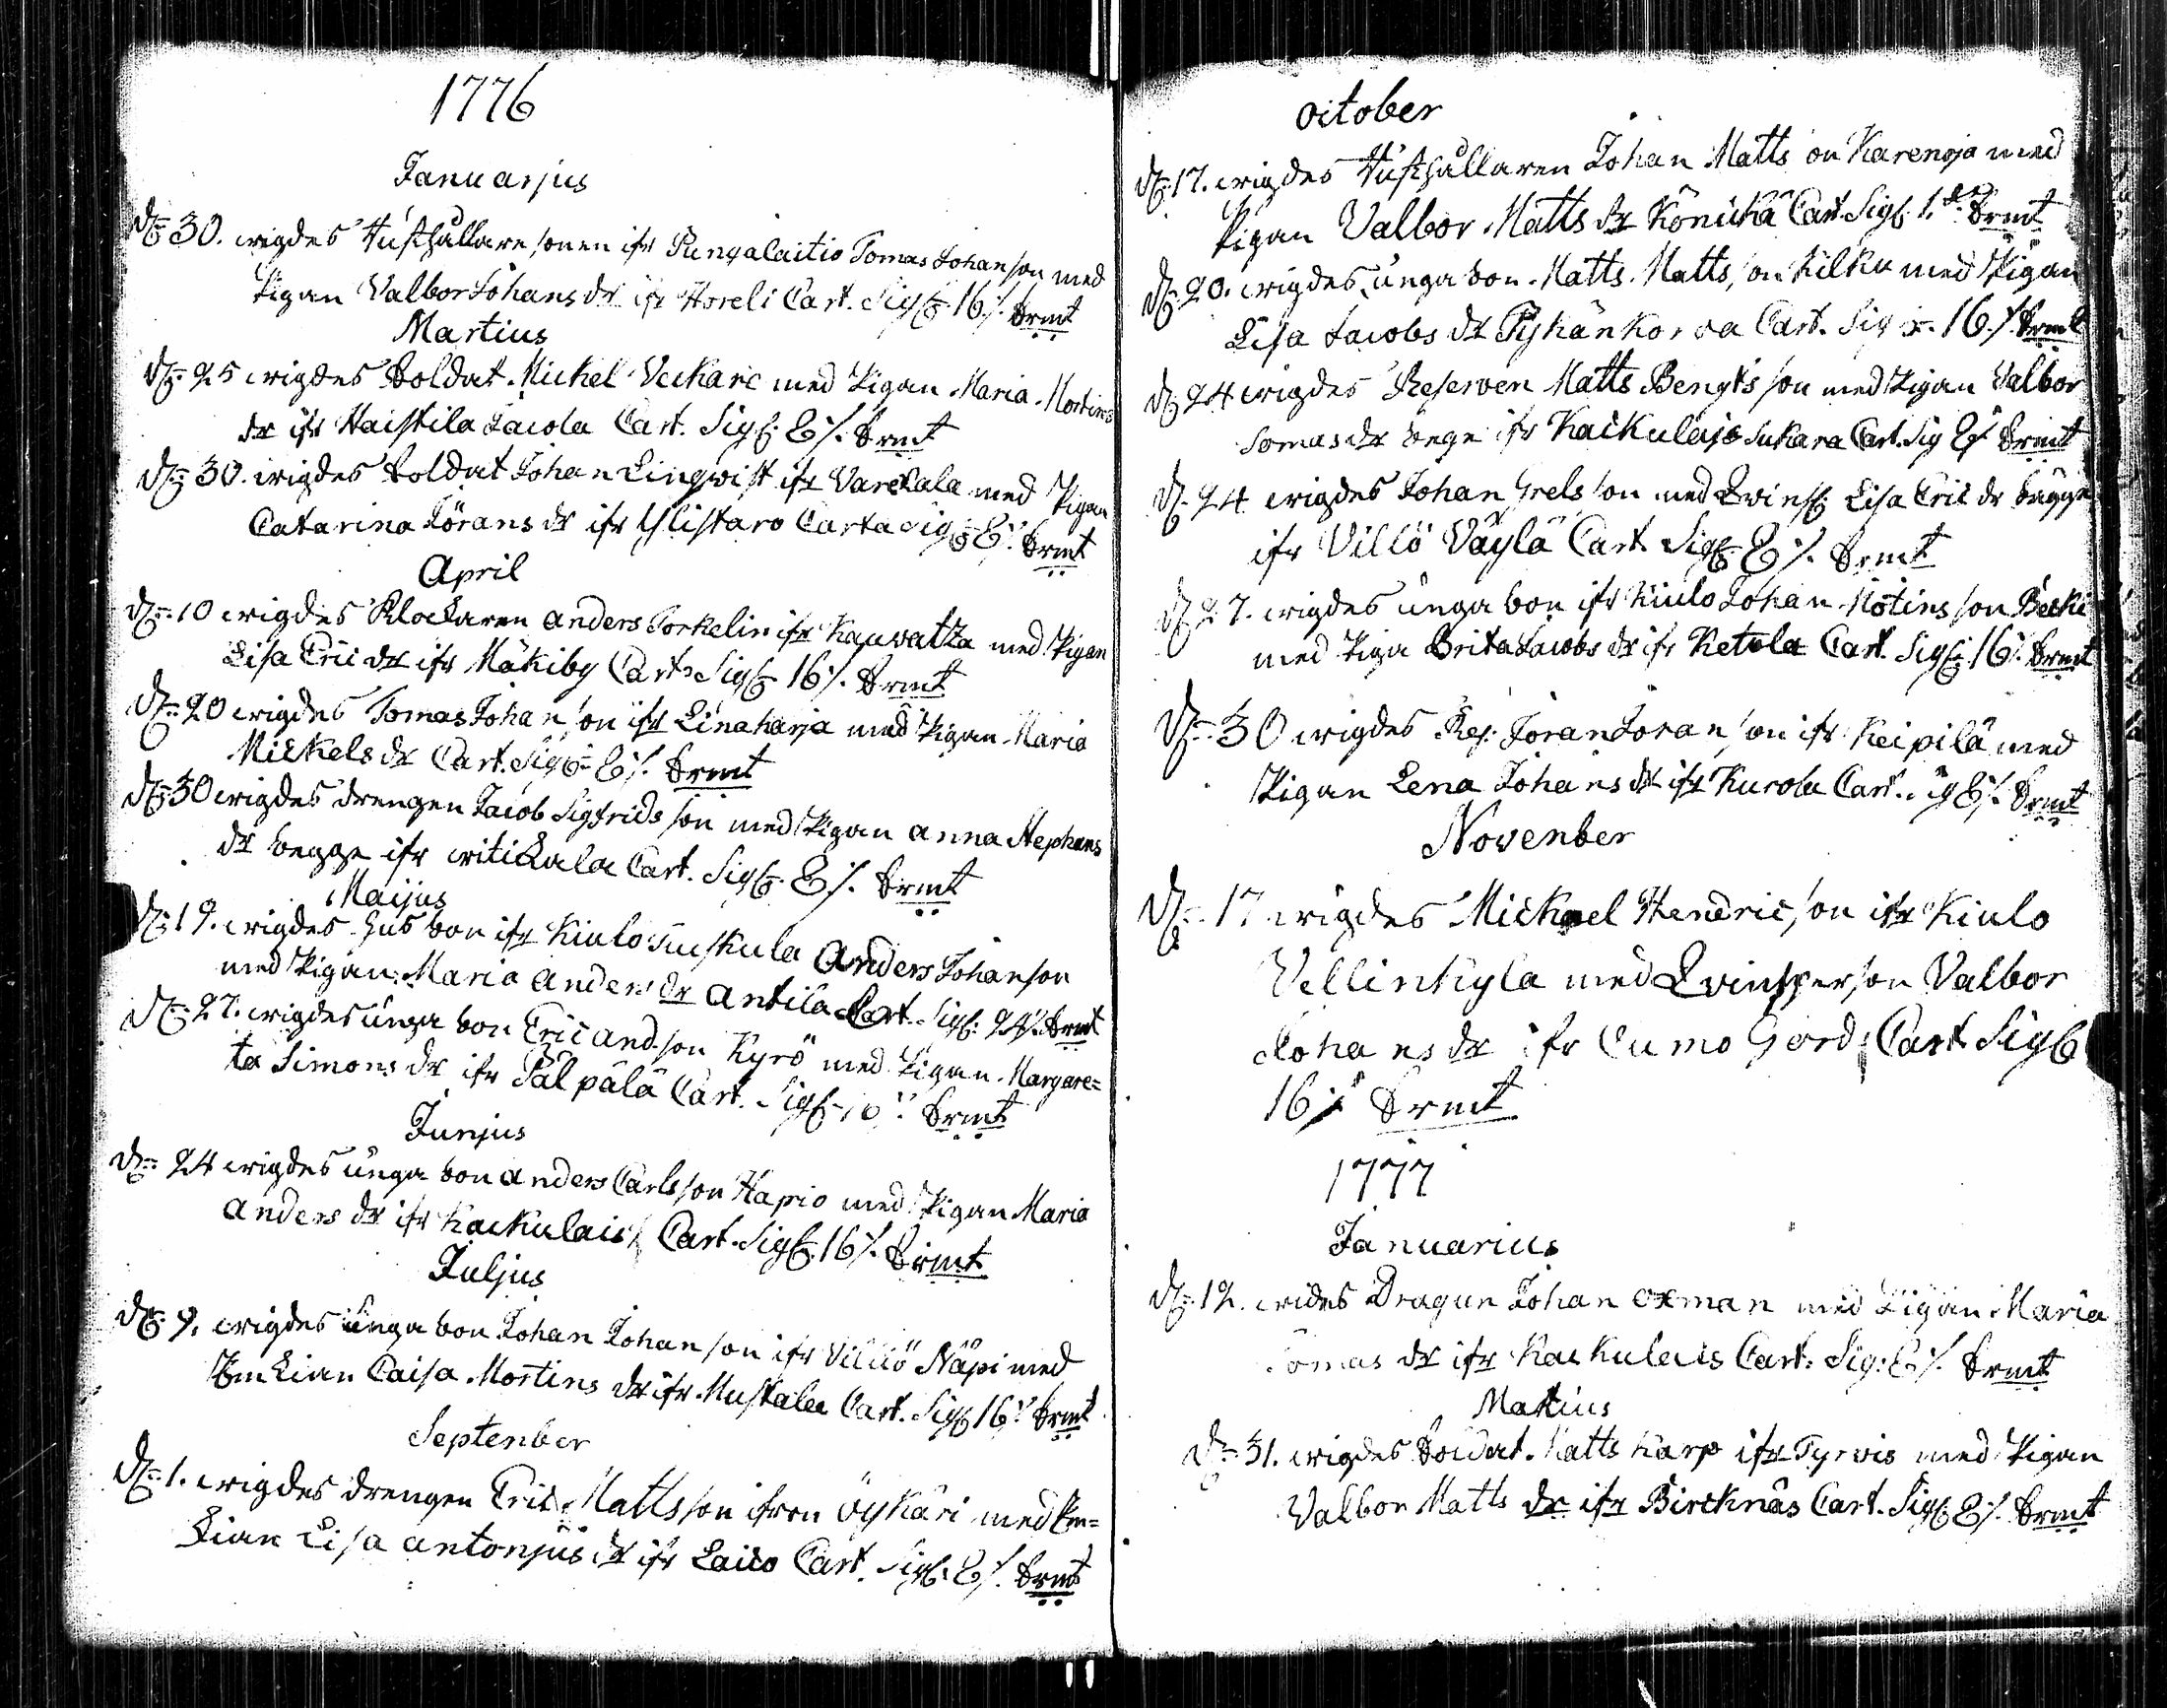 1776
Januarjus
d: 30. wigdes Rusthållare sonen ifr Pungalaitio Tomas Johanson med
Pigan Valbor Johans dr ifr Horeli Cart. Sig: 16 /. Srmt
Martius
d: 25 wigdes Soldat Mickel Veckare med Pigan Maria Mortins
dr ifr Haistila Jacola Cart. Sig: 8 /. Srmt
d: 30. wigdes Soldat Johan Lingwist ifr VareKala med Pigan
Catarina Jörans dr ifr Ylistaro Carta Sig: 8 /. Srmt
April
d: 10 wigdes Klockaren Anders Torkelin ifr Kauvatza med Pigan
Lisa Eric dr ifr Mäkiby Cart. Sig: 16 /. Srmt
d: 20 wigdes Tomas Johanson ifr Linaharja med Pigan Maria
Mickels dr Cart. Sig: 8 /. Srmt
d: 30 wigdes drengen Jacob Sigfrids son med Pigan Anna Stephans
dr begge ifr witiKala Cart. Sig: 8 /. Srmt
Maijus
d: 19. wigdes Husbon ifr Kiulo Anders Johanson
med Pigan Maria Anders dr Antila Cart. Sig: 24 /. Srmt
d: 27. wigdes unga bon Eric Andson Kyrö med Pigan Margare=
ta Simons dr ifr Pälpälä Cart. Sig: Srmt
Junjus
d: 24 wigdes unga bon Anders Carlsson Hapio med Pigan Maria
Anders dr ifr Kackulais Cart. Sig: 16 /. Srmt
Juljus
d: 9. wigdes unga bon Johan Johanson ifr Villiö Näpi med
Enkian Caisa Mortins dr ifr Mustala Cart. Sig: 16 /. Srmt
Septenber
d: 1. wigdes drengen Eric Mattsson ifron Öykäri med En=
kian Lisa Antonjus dr ifr Laico Cart. Sig: 8 /. Srmt
October
d: 17. wigdes Rusthållaren Johan Mattson Karenoja med
Pigan Valbor Matts dr Könickä Cart. Sig: 1. dr Srmt
d: 20. wigdes unga bon Matts Mattson Kilku med Pigan
Lisa Jacobs dr PyhänKorva Cart. Sig: 16 /. Srmt
d: 24 wigdes Reserven Matts Bengts son med Pigan Valbor
Tomas dr bege ifr Kackulais Sukara Cart. Sig 8 /. Srmt
d: 24 wigdes Johan Grelsson med Qvinsp: Lisa Eric dr bägge
ifr Villö Väylä Cart. Sig: 8 /. Srmt
d: 27. wigdes unga bon ifr Kiulo Johan Motinsson
med Piga Brita Jacobs dr ifr Ketola Cart. Sig: 16 /. Srmt
d: 30 wigdes Res: Jöran Joranson ifr Keipilä med
Pigan Lena Johans dr ifr Kurola Cart. Sig 8 /. Srmt
Novenber
d: 17 wigdes Mickael Hendricson ifr Kiulo
Vellinkyla med Qvinsperson Valbor
Johans dr ifr Cumo Gord Cart Sig:
16 /. Srmt
1777
Januarius
d: 12. wides Dragun Johan Oxman med Pigan Maria
Tomas dr ifr Kackulais Cart: Sig: 8 /. Srmt
Martius
d: 31. wigdes Soldat Matts Karp ifr Tyrvis med Pigan
Valbor Matts dr ifr Bircknäs Cart. Sig: 8 /. Srmt